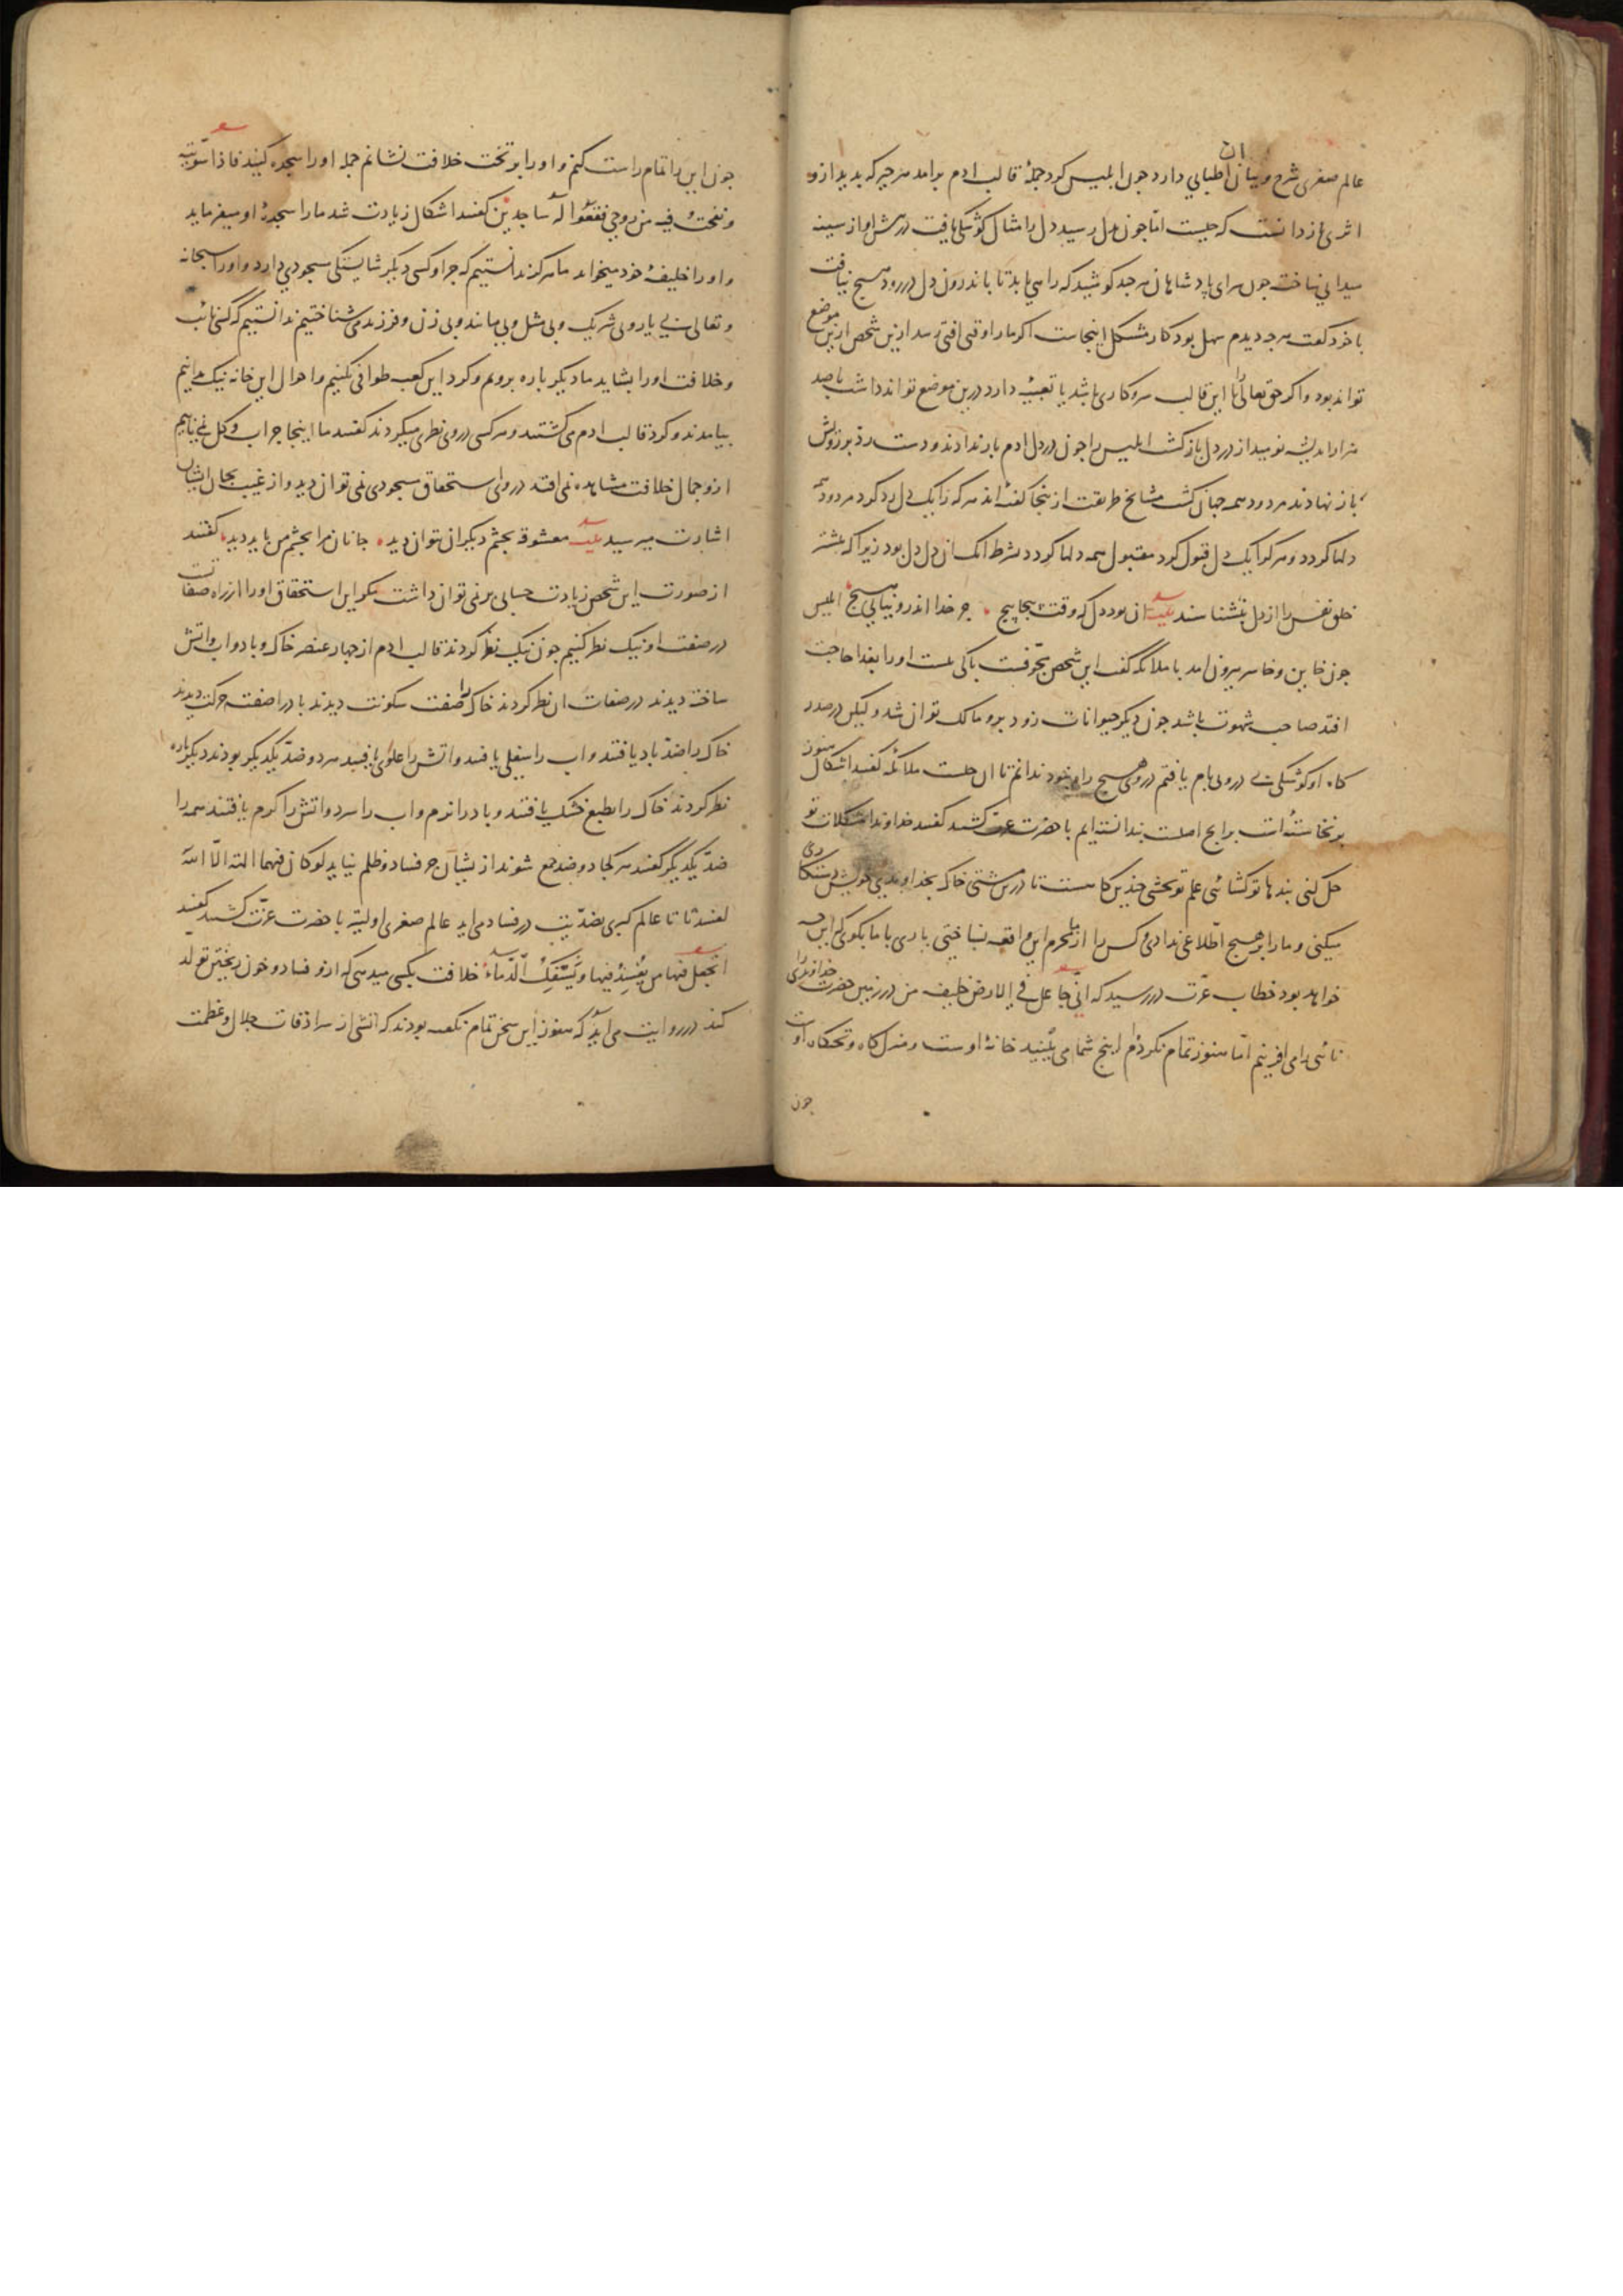 عالم صغری شرح و بیان آن اطنابی دارد چون ابلیس گرد جملهٔ قالب ادم برامد هر چیز که بدید ازو
اثری باز دانست که چیست امّا چون بدل رسید دل را مثال کوشکی یافت در پیش او از سینه
میدانی ساخته چون سرای پادشاهان هر چند کوشید که راهی یابد تا باندرون دل در رود هیچ نیافت
با خود گفت هر چه دیدم سهل بود کار مشکل اینجاست اگر ما را وقتی افتی رسد ازین شخص ازین موضع
تواند بود و اگر حق تعالی را با این قالب سر و کاری باشد یا تعبیهٔ دارد درین موضع تواند داشت با صد
هزار اندیشه نومید از در دل باز گشت ابلیس را چون در دل ادم بار ندادند و دست رد بر رویش
باز نهادند مردود همه جهان گشت مشایخ طریقت ازینجا گفته اند هر که را یک دل رد کرد مردود همه
دلها گردد و هر کرا یک دل قبول کرد مقبول همه دلها گردد بشرط انک ان دل دل بود زیرا که بیشتر
خلق نفس را از دل نشناسند بیت ان بود دل که وقت پیچاپیچ جز خدا اندرو نیابی هیچ ابلیس
چون خایب و خاسر بیرون امد با ملائکه گفت این شخص مجوّفست باکی نیست او را بغذا حاجت
افتد صاحب شهوت باشد چون دیگر حیوانات زود برو مالک توان شد ولیکن در صدر
کاه او کوشکی بی در و بام یافتم در وی هیچ راه نبود ندانم تا ان چیست ملائکه گفتند اشکال هنوز
برنخاسته است برایج اصلست ندانسته ایم با حضرت عزّت گشتند گفتند خداوندا مشکلات تو
حل کنی بندها تو گشائی علم تو بخشی چندین گاهست تا درین مشتی خاک بخداوندی خویش دستکاری
میکنی و ما را بر هیچ اطّلاعی ندادی و کس را از ما محرم این واقعه نساختی باری با ما بگوی که این چه
خواهد بود خطاب عزّت در رسید که انّی جاعل فی الارض خلیفه من در زمین حضرت خداوندی را
نائبی را می افرینم امّا هنوز تمام نکرده ام اینچ شما می بینید خانهٔ اوست و منزل کاه و تختکاه اوست
چون
چون این را تمام راست کنم و او را بر تخت خلافت نشانم جمله او را سجده کنید فاذا سوّیته
و نفخت فیه من روحی فقعوا له ساجدین گفتند اشکال زیادت شد ما را سجدهٔ او میفرماید
و او را خلیفهٔ خود میخواند ما هرگز ندانستیم که جز او کسی دیگر شایستگی مسجودی دارد و او را سبحانه
و تعالی بی یار و بی شریک و بی مثل و بی مانند و بی زن و فرزند می شناختیم ندانستیم که کسی نائب
و خلافت او را بشاید ما دیگر باره برویم و گرد این کعبه طوافی کنیم و احوال این خانه نیک بدانیم
بیامدند و گرد قالب ادم می گشتند و هر کسی در وی نظری میکردند گفتند ما اینجا جز اب و گل نمی یابیم
ازو جمال خلافت مشاهده نمی افتد در وی استحقاق مسجودی نمی توان دید و از غیب بجان ایشان
اشارت میرسید بیت معشوقه بچشم دیگران نتوان دید جانان مرا بچشم من باید دید گفتند
از صورت این شخص زیادت حسابی بر نمی توان داشت مگر این استحقاق او را از راه صفاتست
در صفت او نیک نظر کنیم چون نیک نظر کردند قالب ادم از چهار عنصر خاک و باد و اب و اتش
ساخته دیدند در صفات ان نظر کردند خاک را صفت سکونت دیدند باد را صفت حرکت دیدند
خاک را ضد باد یافتند و اب را سفلی یافتند و اتش را علوی یافتند هر دو ضدّ یکدیگر بودند دیگر باره
نظر کردند خاک را بطبع خشک یافتند و باد را نرم و اب را سرد و اتش را گرم یافتند همه را
ضدّ یکدیگر گفتند هر کجا دو ضد جمع شوند از یشان جز فساد و ظلم نیاید لو کان فیهما الهة الّا الله
لفسدتا تا عالم کبری بضدّیت در فساد می اید عالم صغری اولیتر با حضرت عزّت گشتند گفتند
اتجعل فیها من یفسد فیها و یسفک الدّماء خلافت بکسی میدهی که ازو فساد و خون ریختن تولد
کند در روایت می اید که هنوز این سخن تمام نگفته بودند که اتشی از سرادقات جلال و عظمت